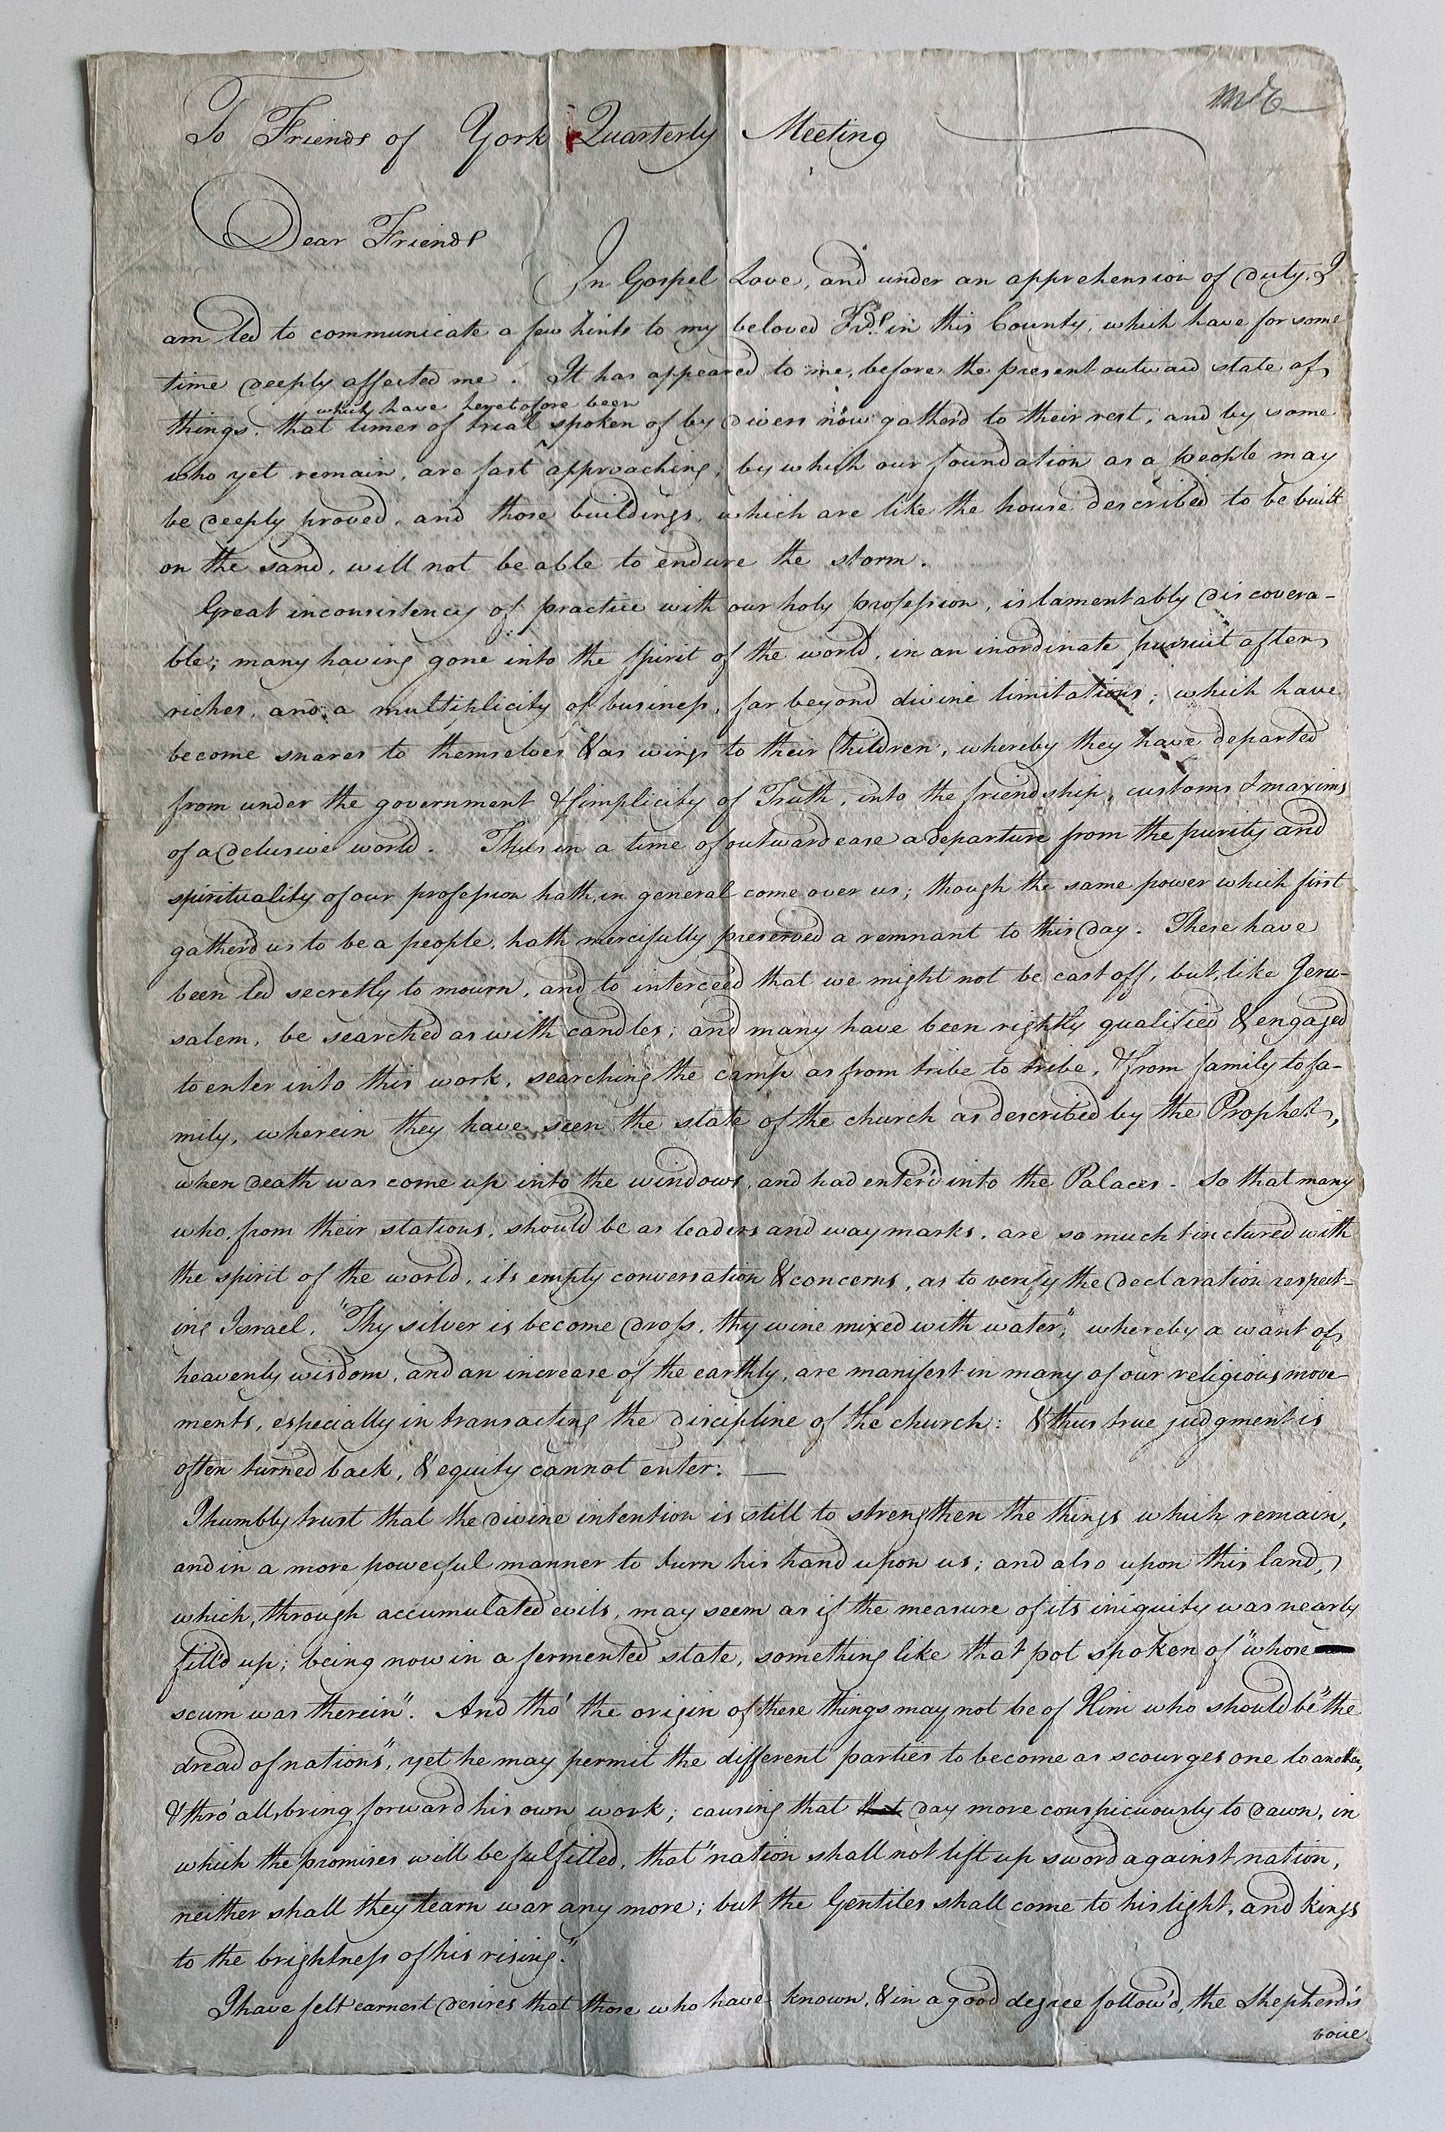 To Friends of York Quarterly Meeting
Dear Friends
In Gospel Love, and under an apprehension of duty, I
am led to communicate a few hints to my beloved Frds. in this County, which have for some
time deeply affected me. It has appeared to me, before the present outward state of
which have heretofore been
things, that times of trial ^ spoken of by divers now gather'd to their rest, and by some
who yet remain, are fast approaching, by which our foundation as a people may
be deeply proved, and those buildings, which are like the house described to be built
on the sand, will not be able to endure the storm.
Great inconsistency of practice with our holy profession, is lamentably discovera-
ble; many having gone into the spirit of the world, in an inordinate pursuit after
riches, and a multiplicity of business, far beyond divine limitations; which have
become snares to themselves & as wings to their Children, whereby they have departed
from under the government & simplicity of Truth, into the friendship, customs & maxims
of a delusive world. Thus in a time of outward ease a departure from the purity and
spirituality of our profession hath, in general come over us; though the same power which first
gather'd us to be a people, hath mercifully preserved a remnant to this day. These have
been led secretly to mourn, and to interceed that we might not be cast off, but, like Jeru-
salem, be searched as with candles; and many have been rightly qualified & engaged
to enter into this work, searching the camp as from tribe to tribe, & from family to fa-
mily, wherein they have seen the state of the church as described by the Prophet,
when death was come up into the windows, and had enter'd into the Palaces. So that many
who, from their stations, should be as leaders and way marks, are so much tinctured with
the spirit of the world, its empty conversation & concerns, as to verify the declaration respect-
ing Israel, "Thy silver is become dross, thy wine mixed with water", whereby a want of
heavenly wisdom, and an increase of the earthly, are manifest in many of our religious move-
ments, especially in transacting the discipline of the church: & thus true judgment is
often turned back, & equity cannot enter. —
I humbly trust that the divine intention is still to strengthen the things which remain,
and in a more powerful manner to turn his hand upon us; and also upon this land,
which, through accumulated evils, may seem as if the measure of its iniquity was nearly
fill'd up; being now in a fermented state, something like that pot spoken of "whose
scum was therein". And tho' the origin of these things may not be of Him who should be "the
dread of nations", yet he may permit the different parties to become as scourges one to another,
& thro' all, bring forward his own work; causing that day more conspicuously to dawn, in
which the promises will be fulfilled, that "nation shall not lift up sword against nation,
neither shall they learn war any more; but the Gentiles shall come to his light, and kings
to the brightness of his rising."
I have felt earnest desires that those who have known, & in a good degree follow'd, the Shepherd's
voice